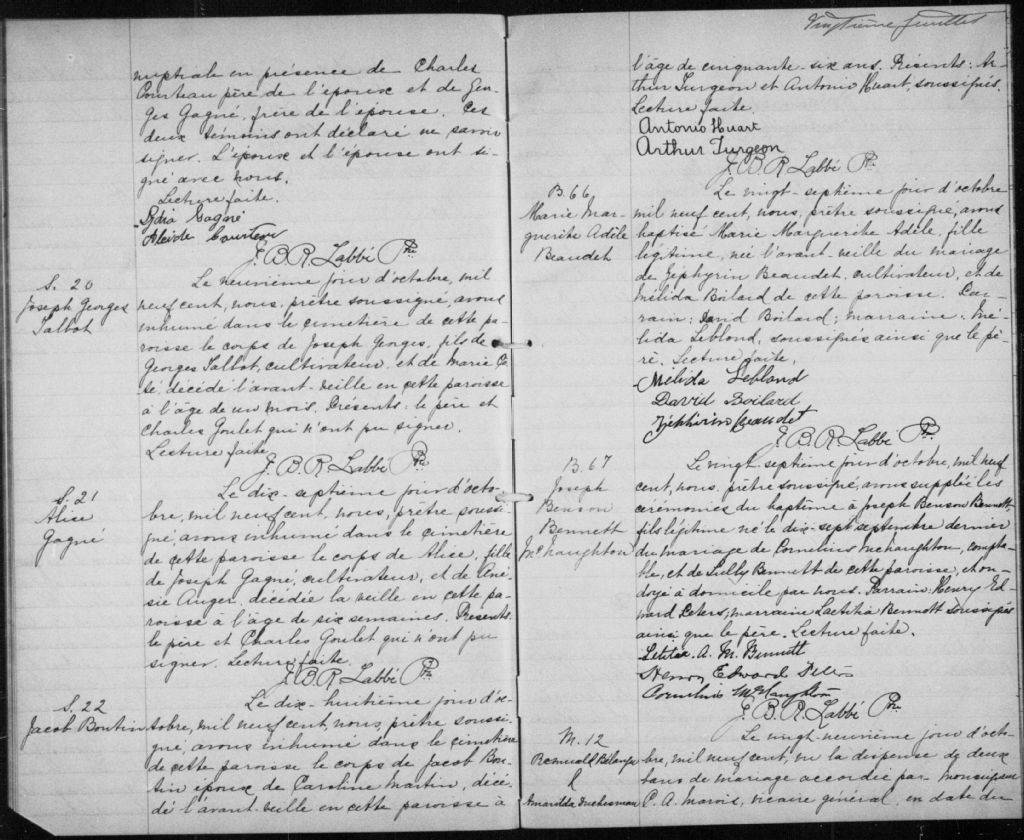 nuptiale en présence de Charles
Courteau père de l'époux et de Geor-
ges Gagné, frère de l'épouse. Ces
deux témoins ont déclaré ne savoir
signer. L'époux et l'épouse ont si-
gné avec nous.
Lecture faite.
Lydia Gagné
Alcide Courteau
J. B. R. Labbé Ptre
S. 20
Joseph Georges
Talbot
Le neuvième jour d'octobre, mil
neuf cent, nous, prêtre soussigné, avons
inhumé dans le cimetière de cette pa-
roisse le corps de Joseph Georges, fils de
Georges Talbot, cultivateur, et de Marie Cô-
té, décédé l'avant-veille en cette paroisse
à l'âge de un mois. Présents: le père et
Charles Goulet qui n'ont pu signer.
Lecture faite
J. B. R. Labbé Ptre
S. 21
Alice
Gagné
Le dix-septième jour d'octo-
bre, mil neuf cent, nous, prêtre soussi-
gné, avons inhumé dans le cimetière
de cette paroisse le corps de Alice, fille
de Joseph Gagné, cultivateur, et de Ané-
sie Auger, décédée la veille en cette pa-
roisse à l'âge de six semaines. Présents
le père et Charles Goulet qui n'ont pu
signer. Lecture faite
J. B. R. Labbé Ptre
S. 22
Jacob Boutin
Le dix-huitième jour d'oc-
tobre, mil neuf cent, nous, prêtre soussi-
gné, avons inhumé dans le cimetière
de cette paroisse le corps de Jacob Bou-
tin époux de Caroline Martin, décé-
dé l'avant-veille en cette paroisse à
Vingtième feuillet
l'âge de cinquante-six ans. Présents: Ar-
thur Turgeon et Antonio Huart, soussignés.
Lecture faite.
Antonio Huart
Arthur Turgeon
J. B. R. Labbé Ptre
B. 66
Marie Mar-
guerite Adèle
Beaudet
Le vingt-septième jour d'octobre
mil neuf cent, nous, prêtre soussigné, avons
baptisé Marie Marguerite Adèle, fille
légitime, née l'avant-veille du mariage
de Zéphyrin Beaudet, cultivateur, et de
Mélida Boilard de cette paroisse. Par-
rain: David Boilard; marraine: Mé-
lida Leblond, soussignés ainsi que le pè-
re. Lecture faite.
Mélida Leblond
David Boilard
Zéphirin Beaudet
J. B. R. Labbé Ptre
B. 67
Joseph
Benson
Bennett
McNaughton
Le vingt-septième jour d'octobre, mil neuf
cent, nous, prêtre soussigné, avons suppléé les
cérémonies du baptême à Joseph Benson Bennett
fils légitime né le dix-sept septembre dernier
du mariage de Cornelius McNaughton, compta-
ble, et de Lully Bennett de cette paroisse, et on-
doyé à domicile par nous. Parrain: Henry Ed-
ward Peters, marraine Laetitia Bennett soussignés
ainsi que le père. Lecture faite.
Letitia A. M. Bennett
Henry Edward Peters
Cornelius McNaughton
J. B. R. Labbé Ptre
M. 12
Romuald Bélanger
&
Amarilda Duchesneau
Le vingt-neuvième jour d'octo-
bre, mil neuf cent, vu la dispense de deux
bans de mariage accordée par Monsieur
C. A. Marois, vicaire général, en date du